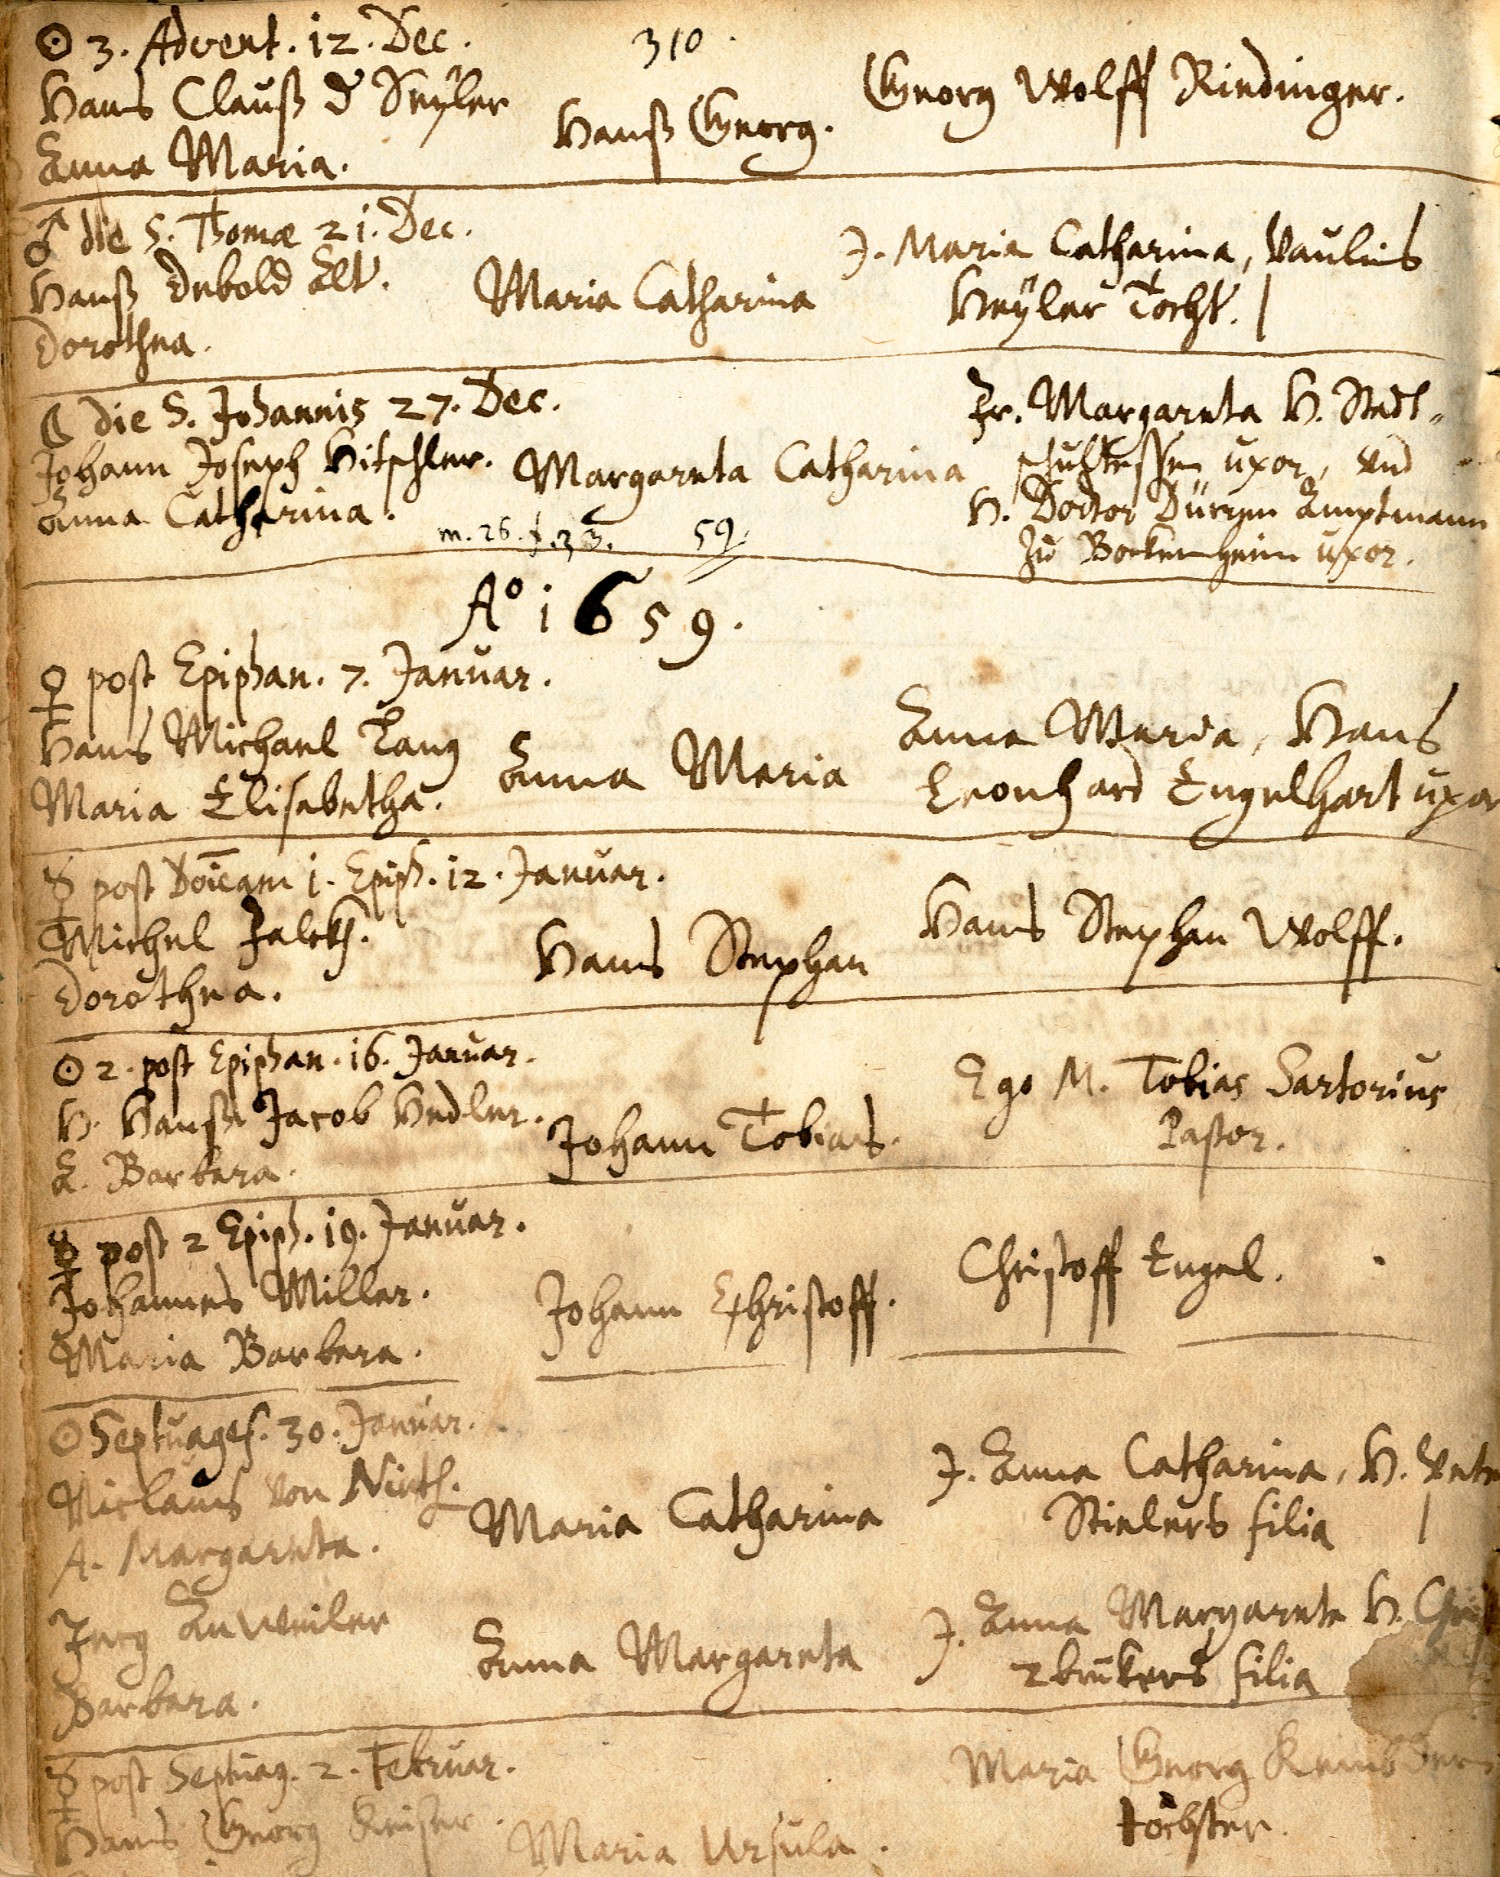 ☉ 3. Advent. 12. Dec.
310.
Hans Clauß d Seÿler
Anna Maria.
Hanß Georg.
Georg Wolff Riedinger.
♂ die S. Thomæ 21. Dec.
Hanß Debold Alt.
Dorothea.
Maria Catharina
J. Maria Catharina, Paulus
Heÿler Tocht.
☾ die S. Johannis 27. Dec.
Johann Joseph Hitschler.
Anna Catharina.
Margareta Catharina
Fr. Margareta H. Stadt-
schultessen uxor, und
H. Doctor Dürren Amptmann
zu Bockenheim uxor.
m. 26. f. 33. 59.
Aº 1659.
♀ post Epiphan. 7. Januar.
Hans Michael Lang
Maria Elisabetha.
Anna Maria
Anna Maria, Hans
Leonhard Engelhart uxor
☿ post Doicam 1. Epiph. 12. Januar.
Michel
Dorothea.
Hans Stephan
Hans Stephan Wolff.
☉ 2. post Epiphan. 16. Januar.
H. Hanß Jacob Hedler.
A. Barbara.
Johann Tobias.
Ego M. Tobias Sartorius
Pastor.
☿ post 2 Epiph. 19. Januar.
Johannes Miller.
Maria Barbara.
Johann Christoff.
Christoff Engel.
☉ Septuages. 30. Januar.
Niclaus von
A. Margareta.
Maria Catharina
J. Anna Catharina, H.
Stielers filia
Jerg Anweiler
Barbara.
Anna Margareta
J. Anna Margareta H.
Zbrukers filia
☿ post Septuag. 2. Februar.
Hans Georg Keiser.
Maria Ursula.
Maria Georg
tochter.